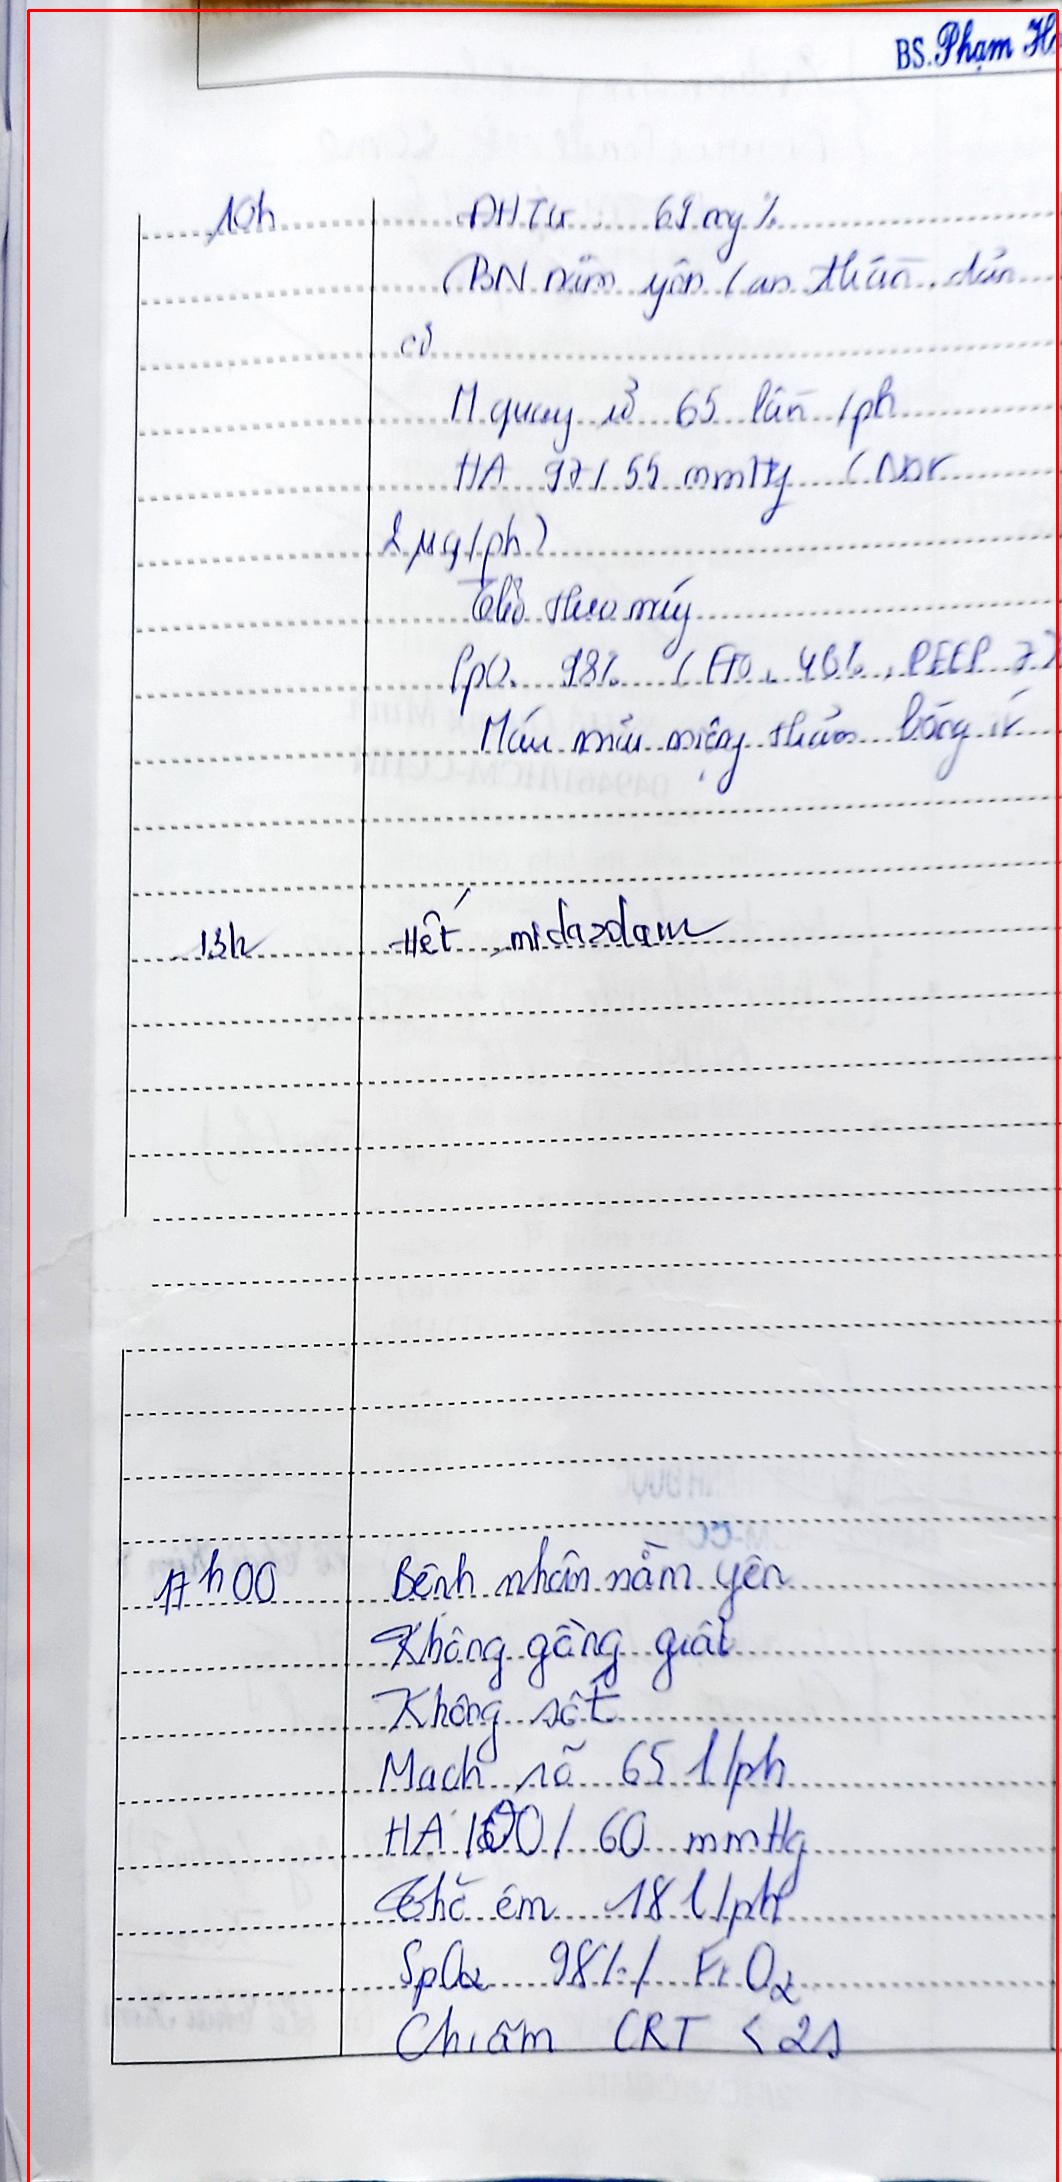 BS. Phạm H
10h ĐHTm 69 mg%
BN nằm yên (an thần, dãn
cơ)
M quay rõ 65 lần /ph
HA 97/55 mmHg (Nor
2 µg/ph)
Thở theo máy
SpO2 98% (FiO2 40%, PEEP 7)
Máu mũi miệng thấm băng ít
13h Hết midazolam
17h00 Bệnh nhân nằm yên
Không gồng giật
Không sốt
Mạch rõ 65 l/ph
HA 100/60 mmHg
Thở êm 18 l/ph
SpO2 98% / FiO2
Chi ấm CRT < 2s